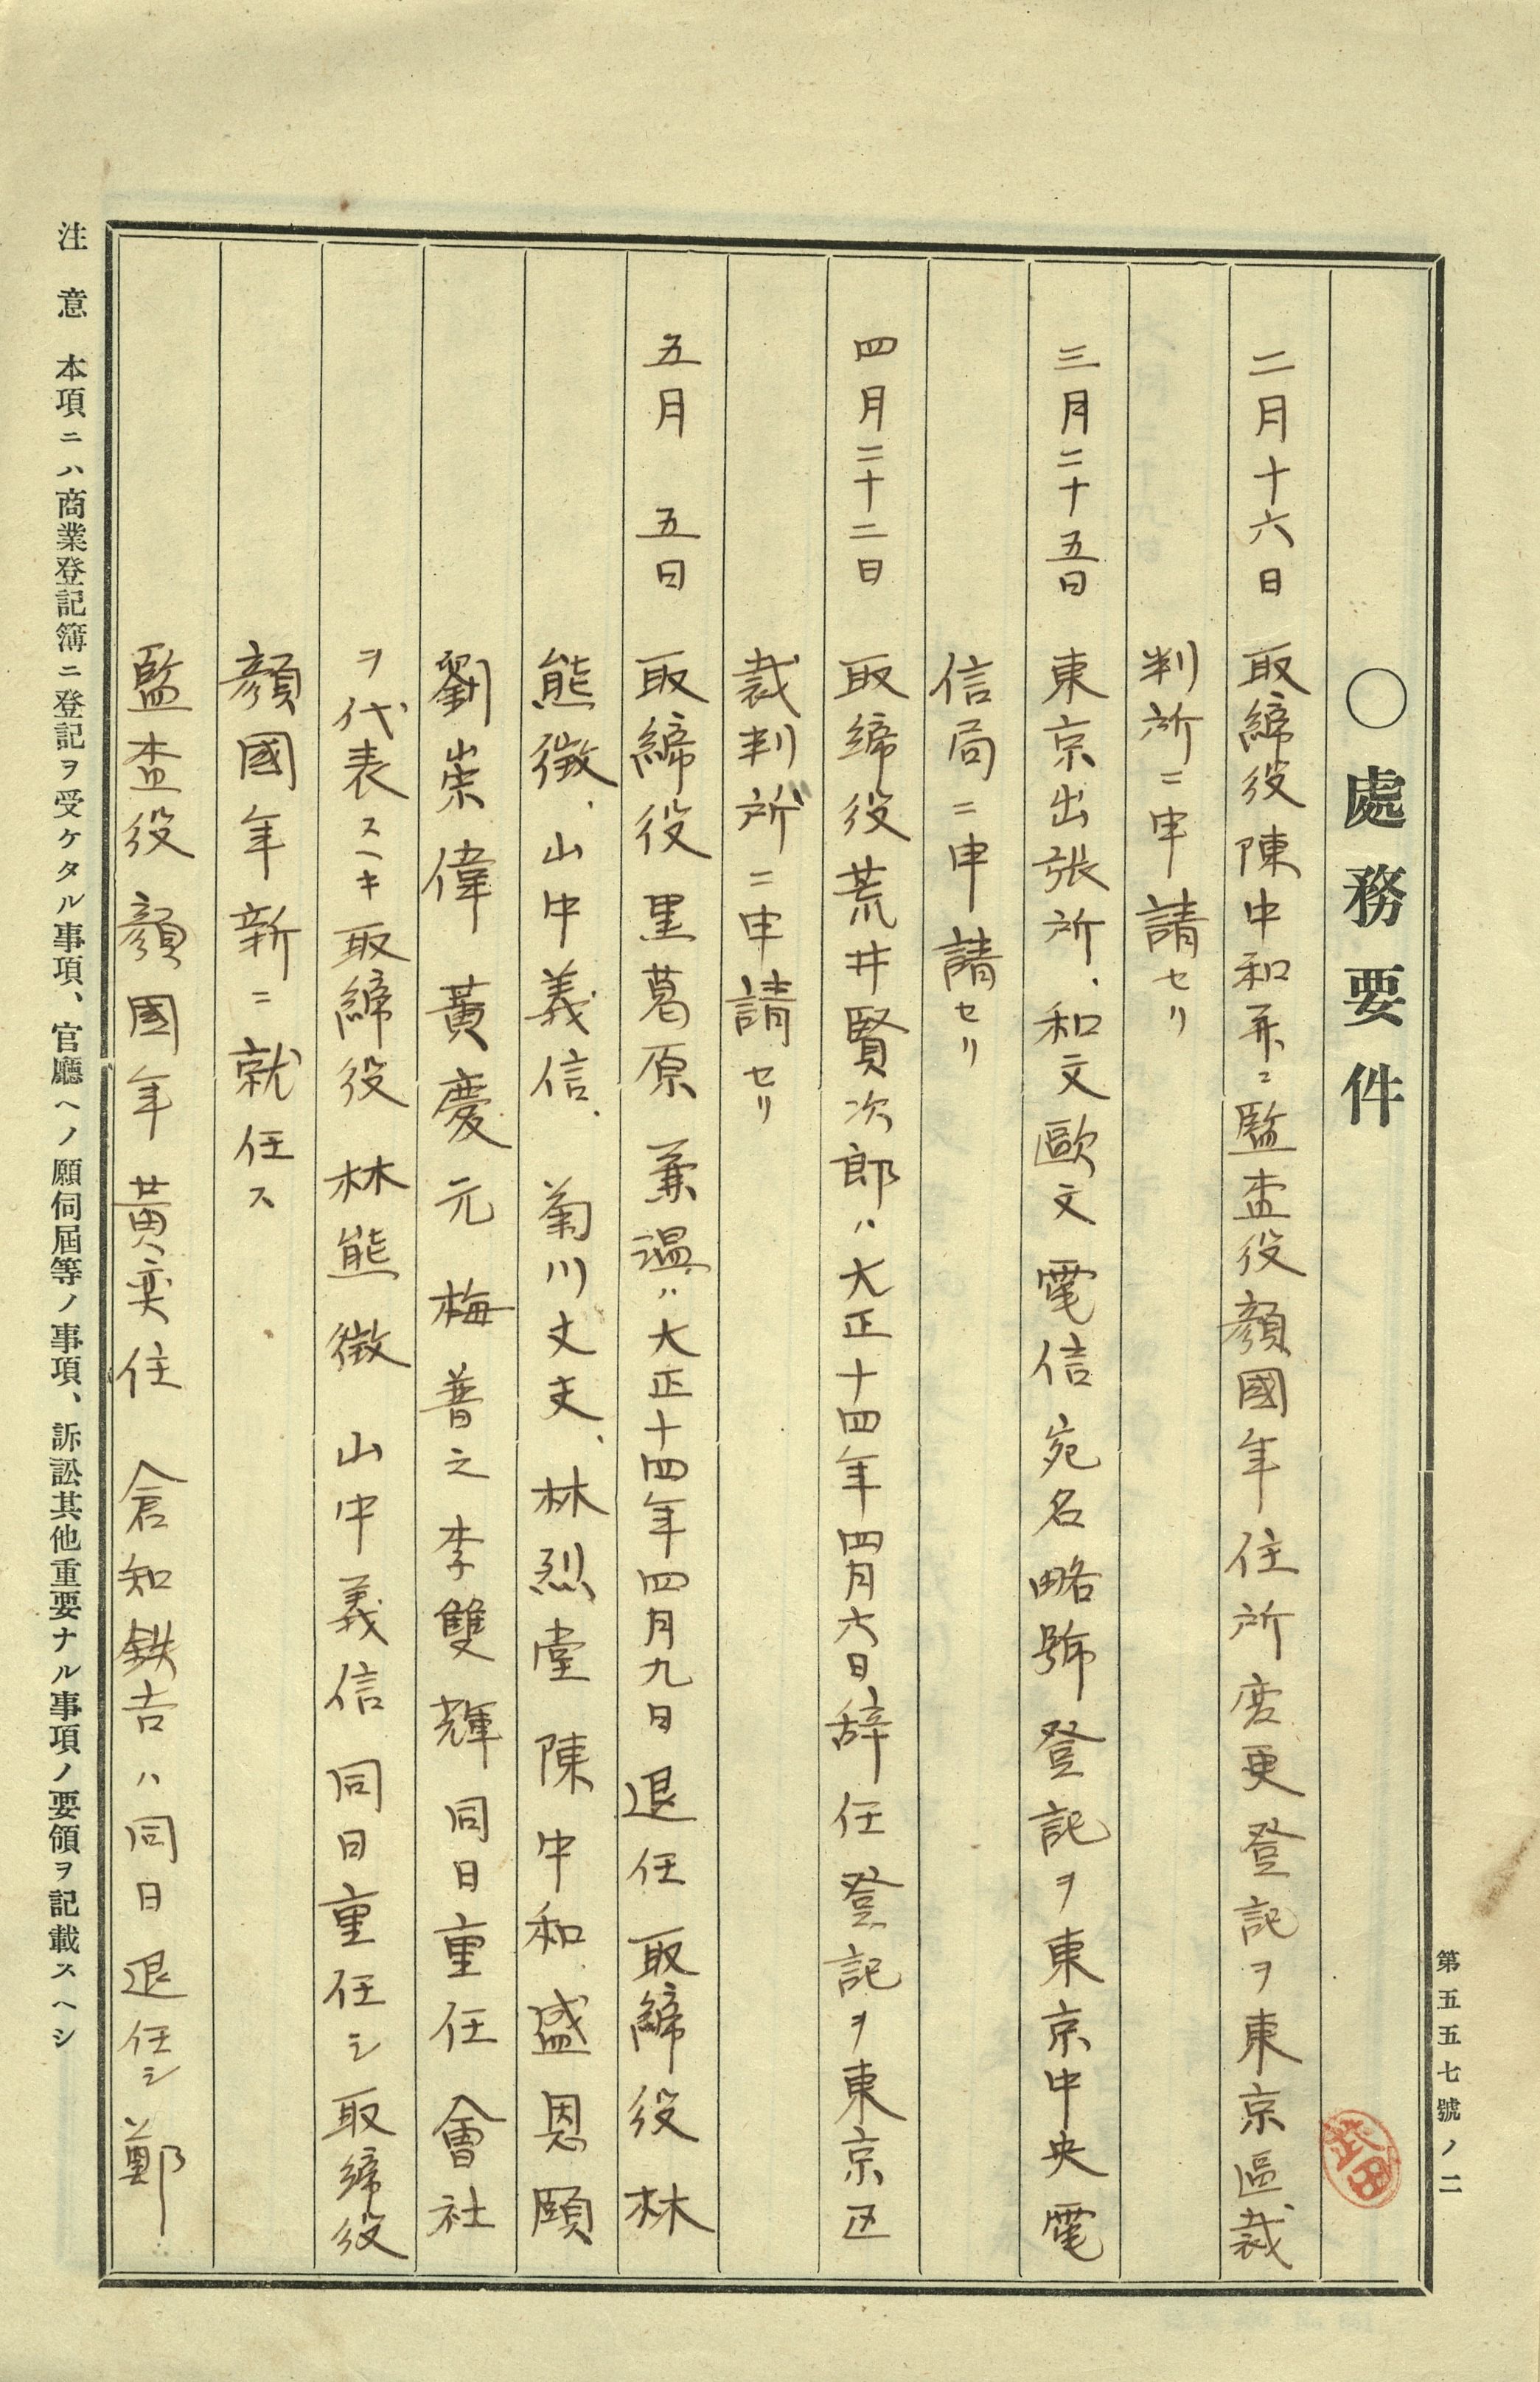 第五五七號ノ二
〇處務要件
二月十六日 取締役陳中和並ニ監査役顏國年住所変更登記ヲ東京區裁
判所ニ申請セリ
三月二十五日 東京出張所、和文歐文電信宛名略號登記ヲ東京中央電
信局ニ申請セリ
四月二十二日 取締役荒井賢次郎ハ大正十四年四月六日辞任登記ヲ東京区
裁判所ニ申請セリ
五月 五日 取締役里葛原 兼温ハ大正十四年四月九日退任 取締役 林
熊徴、山中義信、菊川丈夫、林烈堂 陳中和 盛恩頤
劉崇偉 黃慶元 梅普之 李雙輝 同日重任 會社
ヲ代表スヘキ取締役 林熊徴 山中義信 同日重任シ 取締役
顏國年新ニ就任ス
監査役 顏國年 黃奕住 倉知鉄吉ハ同日退任シ 鄭
注意 本項ニハ商業登記簿ニ登記ヲ受ケタル事項、官廳ヘノ願伺屆等ノ事項、訴訟其他重要ナル事項ノ要領ヲ記載スヘシ